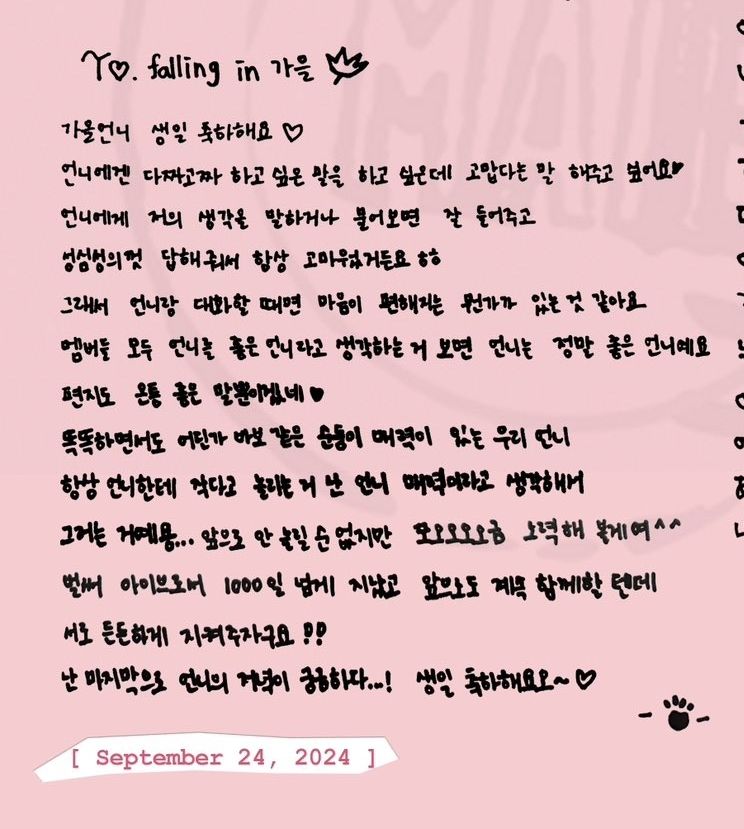 To. falling in 가을
가을언니 생일 축하해요 ♡
언니에겐 다짜고짜 하고 싶은 말을 하고 싶은데 고맙다는 말 해주고 싶어요♥
언니에게 저의 생각을 말하거나 물어보면 잘 들어주고
성심성의껏 답해줘서 항상 고마웠거든요 ㅎㅎ
그래서 언니랑 대화할 때면 마음이 편해지는 뭔가가 있는 것 같아요
멤버들 모두 언니를 좋은 언니라고 생각하는 거 보면 언니는 정말 좋은 언니예요
편지도 온통 좋은 말뿐이겠네 ♥
똑똑하면서도 어딘가 바보 같은 순둥이 매력이 있는 우리 언니
항상 언니한테 작다고 놀리는 거 난 언니 매력이라고 생각해서
그러는 거예용... 앞으로 안 놀릴 순 없지만 쪼오오오오금 노력해 볼게여^^
벌써 아이브로써 1000일 넘게 지났고 앞으로도 계속 함께할 텐데
서로 든든하게 지켜주자구요 !!
난 마지막으로 언니의 저녁이 궁금하다...! 생일 축하해요오~♡
[ September 24, 2024 ]